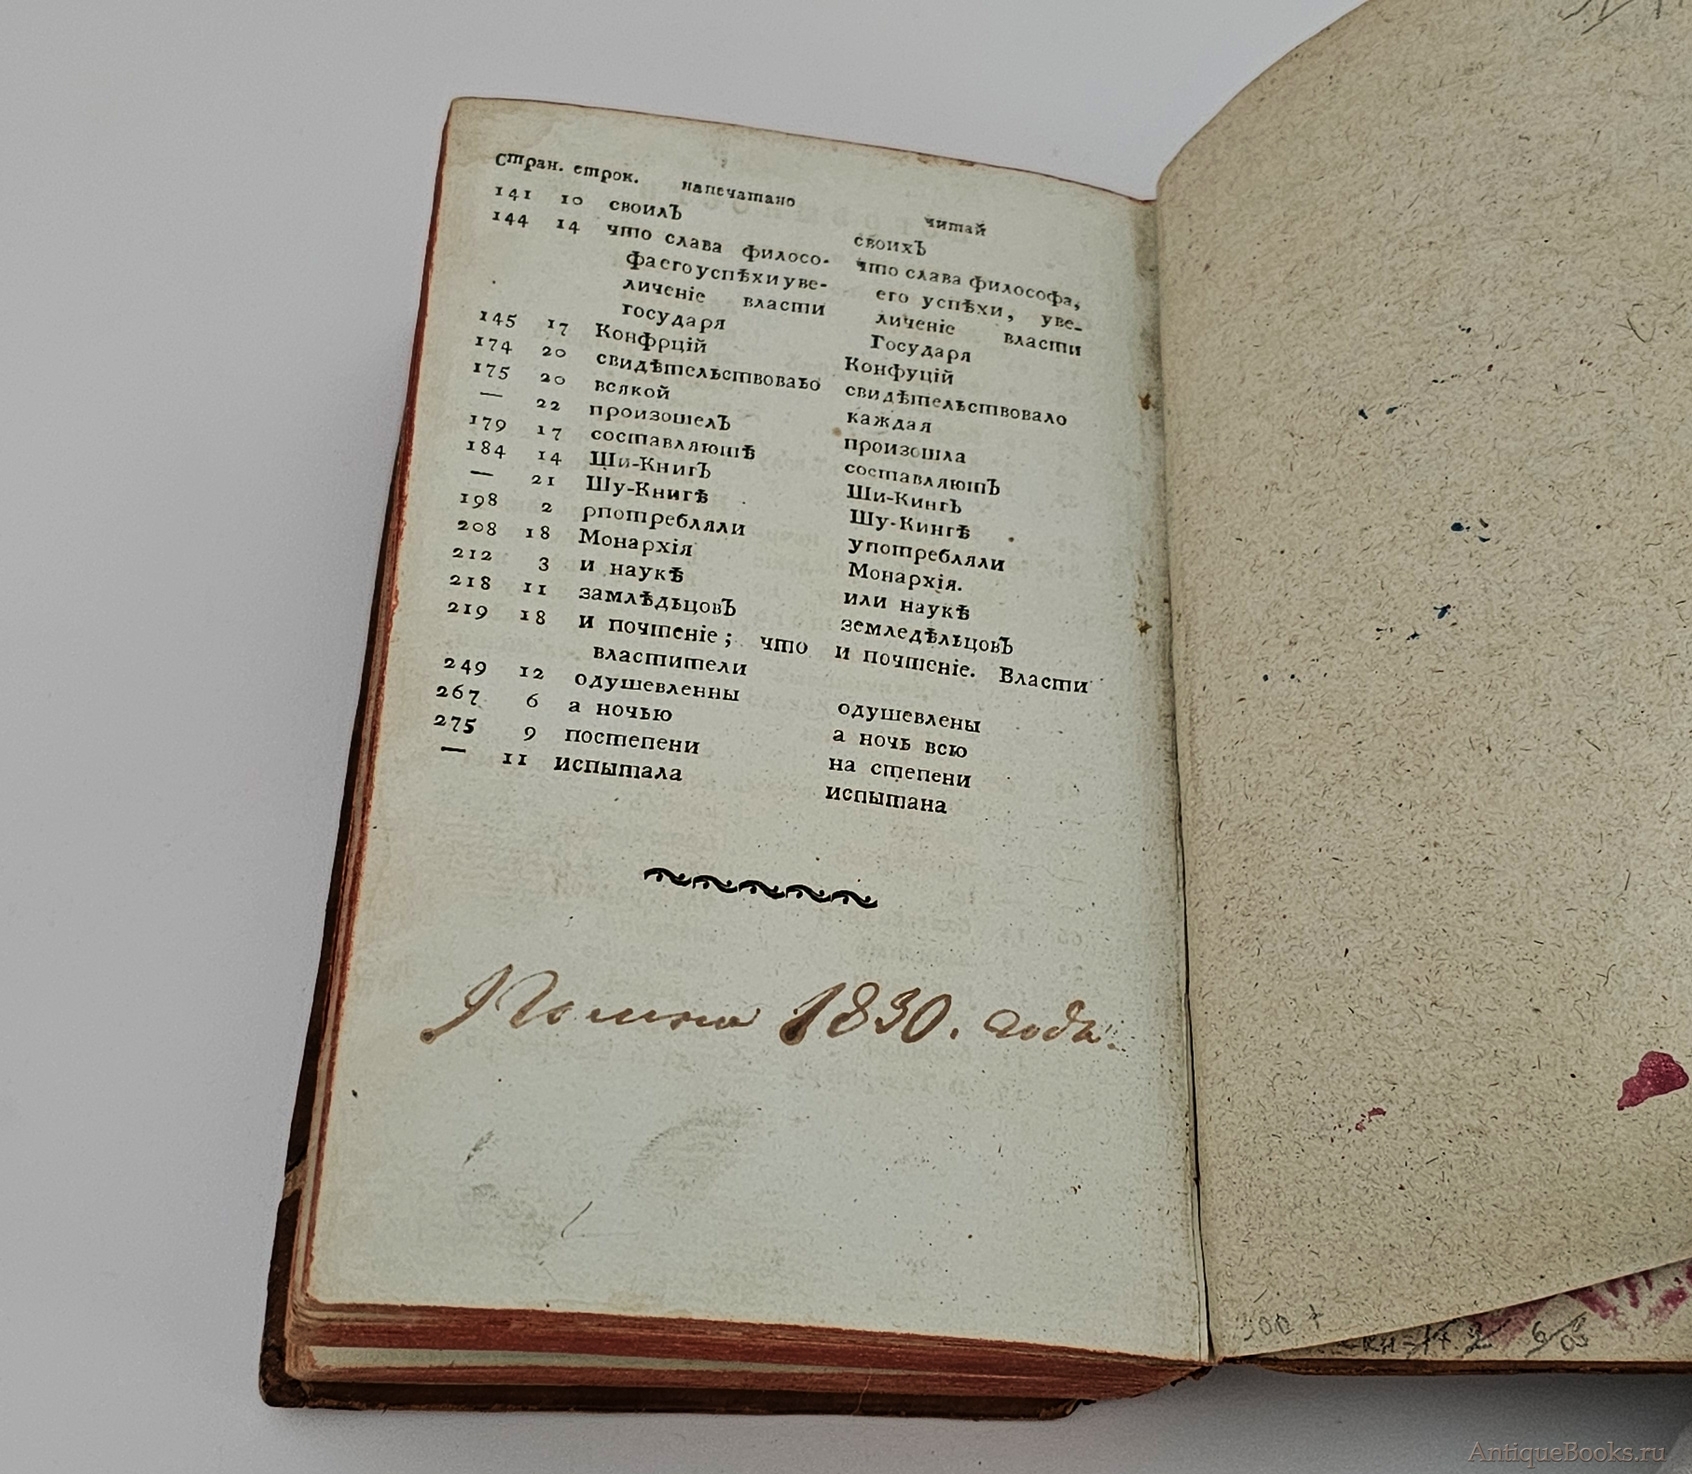 Стран. строк. напечатано читай
141 10 своилЪ своихЪ
144 14 что слава филосо- что слава философа,
фа его успѣхи уве- его успѣхи, уве-
личеніе власти личеніе власти
государя Государя
145 17 Конфрцій Конфуцій
174 20 свидѣтельствоваьо свидѣтельствовало
175 20 всякой каждая
— 22 произошелЪ произошла
179 17 составляютѣ составляютЪ
184 14 Ши-КнигЪ Ши-КингЪ
— 21 Шу-Книгѣ Шу-Кингѣ
198 2 рпотребляли употребляли
208 18 Монархія Монархія.
212 3 и наукѣ или наукѣ
218 11 замлѣдьцовЪ земледѣльцовЪ
219 18 и почтеніе; что и почтеніе. Власти
властители
249 12 одушевленны одушевлены
267 6 а ночью а ночь всю
275 9 постепени на степени
— 11 испытала испытана
1830. года.
300 т
AntiqueBooks.ru